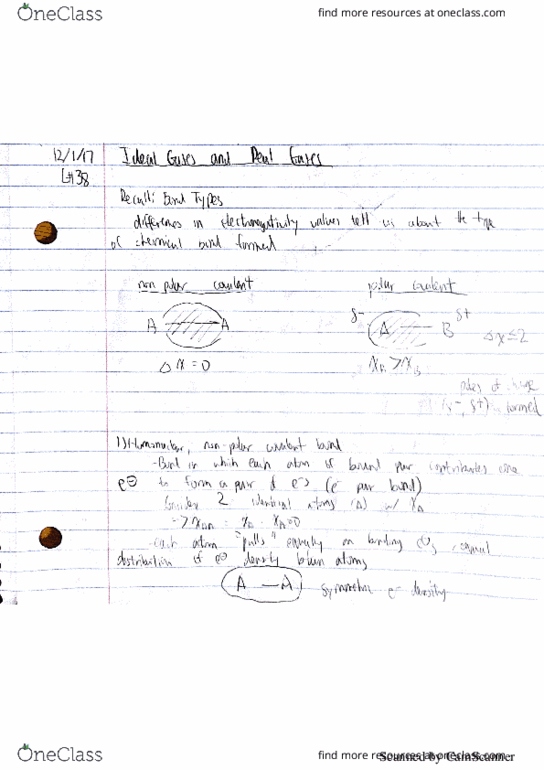 OneClass
find more resources at oneclass.com
12/1/17
L#38
Ideal Gases and Real Gases
Recall: Bond Types
difference in electronegativity values tell us about the type
of chemical bond formed
non polar covalent
polar covalent
A A
δ- A B δ+
Δx≤2
Δx=0
xA > xB
poles of charge
(δ-, δ+) formed
1) Homonuclear, non-polar covalent bond
-Bond in which each atom of bound pair contributes one
e⊖ to form a pair of e⊖s (e- pair bond)
Consider 2 identical atoms (A) w/ xA
-each atom "pulls" equally on bonding e⊖s, equal
distribution of e⊖ density b/wn atoms
A — A
symmetric e- density
OneClass
find more resources at oneclass.com
Scanned by CamScanner